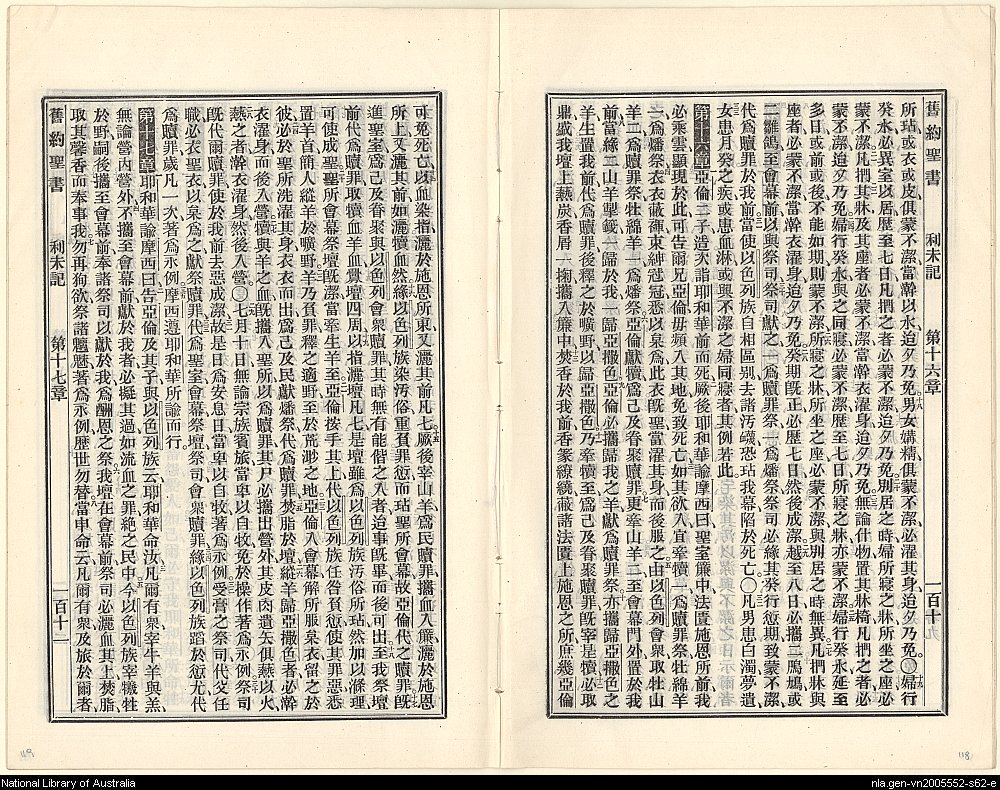 舊約聖書 利未記 第十六章 一百十九
所玷或衣或皮俱蒙不潔當澣以水迨夕乃免男女媾精俱蒙不潔必濯其身迨夕乃免〇婦行
癸水必異室以居歷至七日凡捫之者必蒙不潔迨夕乃免別居之時婦所寢之牀所坐之座必
蒙不潔凡捫其牀及其座者必蒙不潔當澣衣濯身迨夕乃免無論什物置其牀椅凡捫之者必
蒙不潔迨夕乃免婦行癸水與之同寢必蒙不潔歷至七日所寢之牀亦蒙不潔婦行癸水延至
多日或前或後不能如期則蒙不潔所寢之牀所坐之座必蒙不潔與別居之時無異凡捫牀與
座者必蒙不潔當澣衣濯身迨夕乃免癸期既正必歷七日然後成潔越至八日必攜二鳲鳩或
二雛鴿至會幕前以與祭司祭司獻之一爲贖罪祭一爲燔祭祭司必緣其癸行愆期致蒙不潔
代爲贖罪於我前當使以色列族自相區別去諸汚衊恐玷我幕陷於死亡〇凡男患白濁夢遺
女患月癸之疾或患血淋或與不潔之婦同寢者其例若此
第十六章亞倫二子造次詣耶和華前而死厥後耶和華諭摩西曰聖室簾中法匱施恩所前我
必乘雲顯現於此可告爾兄亞倫毋頻入其地免致死亡如其欲入宜牽犢一爲贖罪祭牡綿羊
一爲燔祭衣枲衣蔽褌束紳冠冕悉以枲爲此衣既聖當濯其身而後服之由以色列會衆取牡山
羊二爲贖罪祭牡綿羊一爲燔祭亞倫獻犢爲己及眷聚贖罪更牽山羊二至會幕門外置於我
前當緣二山羊掣籤一歸於我一歸亞撒色歸我之羊獻爲贖罪祭亦攜歸亞撒色之
羊生置我前代爲贖罪後釋之於曠野以歸亞撒色乃牽犢至爲己及眷聚贖罪既宰是犢必取
鼎盛我壇上爇炭香屑一掬攜入簾中焚香於我前香篆繚繞蔽諸法匱上施恩之所庶幾亞倫
可免死亡以血染指灑於施恩所東又灑其前凡七厥後宰山羊爲民贖罪攜血入簾灑於施恩
所上又灑其前如灑犢血然緣以色列族染汚俗重負罪愆而玷聖所會幕故亞倫代之贖罪既
進聖室爲己及眷聚與以色列會衆贖罪其時無有能偕之入者迨事既畢而後可出至我祭壇
前代爲贖罪取犢血羊血釁壇四周以指灑壇凡七是壇雖爲以色列族汚俗所玷然加以滌理
可使成聖聖所會幕祭壇既潔當牽生羊至亞倫按手其上代以色列族任咎負愆使其罪惡悉
置羊首簡人縱羊於曠野羊乃負罪釋之適野至於荒渺之地亞倫入會幕解所服枲衣留之於
彼必於聖所洗濯其身衣衣而出爲己及民獻燔祭代爲贖罪焚脂於壇縱羊歸亞撒色者必澣
衣濯身而後入營犢與羊之血既攜入聖所以爲贖罪其尸必攜出營外其皮肉遺矢俱爇以火
爇之者澣衣濯身然後入營〇七月十日無論宗族賓旅當卑以自牧免於操作著爲永例祭司
既代爾贖罪使於我前去惡成潔故是日爲安息日當卑以自牧著爲永例受膏之祭司代父任
職必衣聖衣以枲爲之獻祭贖罪代爲聖室會幕祭壇祭司會衆贖罪緣以色列族蹈於愆尤代
爲贖罪歲凡一次著爲永例摩西遵耶和華所諭而行
第十七章耶和華諭摩西曰告亞倫及其子與以色列族云耶和華命汝凡爾有衆宰牛羊與羔
無論營內營外不攜至會幕前獻於我者必擬其過如流血之罪絕之民中今以色列族宰犧牲
於野嗣後攜至會幕前奉諸祭司以獻於我爲酬恩之祭我壇在會幕前祭司必灑血其上焚脂
取其馨香而奉事我勿再狥欲祭諸魑魅著爲永例歷世勿替當申命云凡爾有衆及旅於爾者
舊約聖書 利未記 第十七章
118
National Library of Australia
nla.gen-vn2005552-s62-e